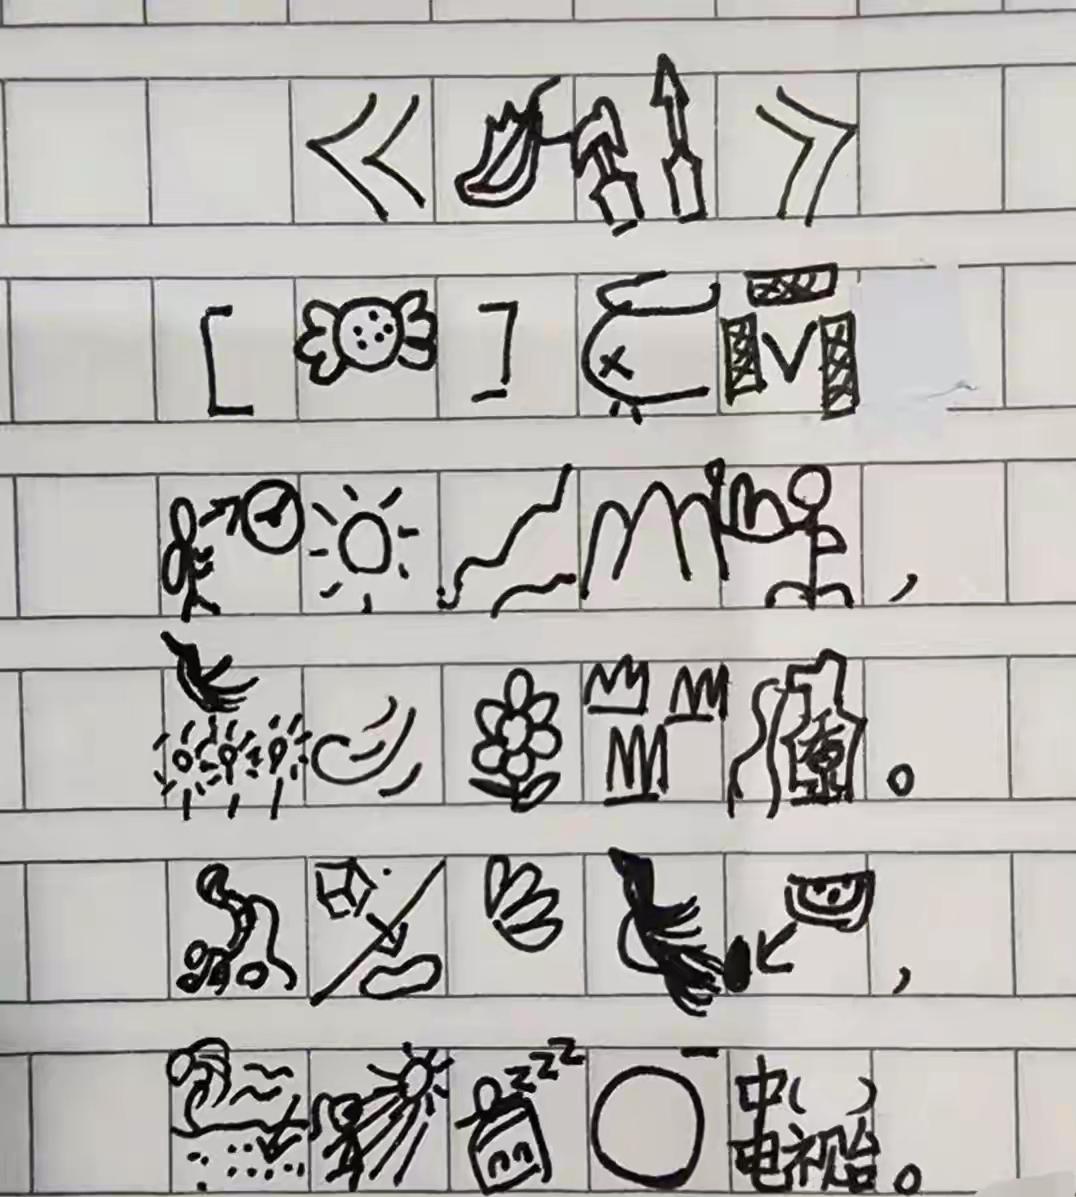 《 》
[ ] x V
，
。
，
zzz 中( )电视台。